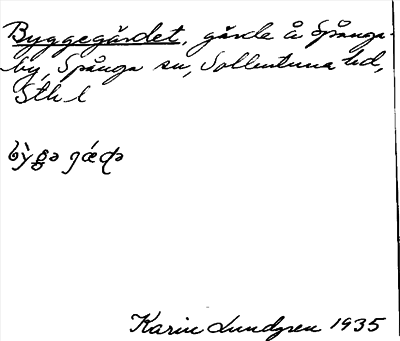 Byggegärdet, gärde å Spånga-
by, Spånga sn, Sollentuna hd,
Sth l
bỳg̥ə jǽḍə
Karin Lundgren 1935